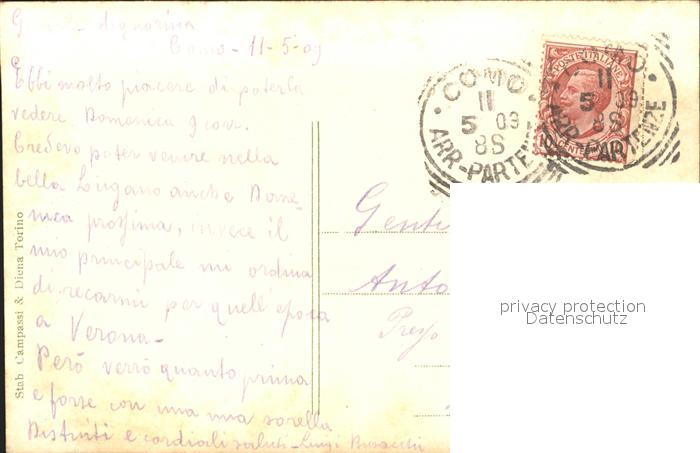 Gentile Signorina
Como - 11-5-09
Ebbi molto piacere di poterla
vedere Domenica 9 corr.
Credevo poter venire nella
bella Lugano anche Dome-
nica prossima, invece il
mio principale mi ordina
di recarmi per quell'epoca
a Verona-
Però verrò quanto prima
e forse con una mia sorella
Distinti e cordiali saluti - Luigi
Stab. Campassi & Diena Torino
COMO
11
5 09
8S
ARR-PARTENZE
COMO
11
5 09
8S
ARR-PARTENZE
POSTE ITALIANE
Genti
Anto
Presso
privacy protection
Datenschutz